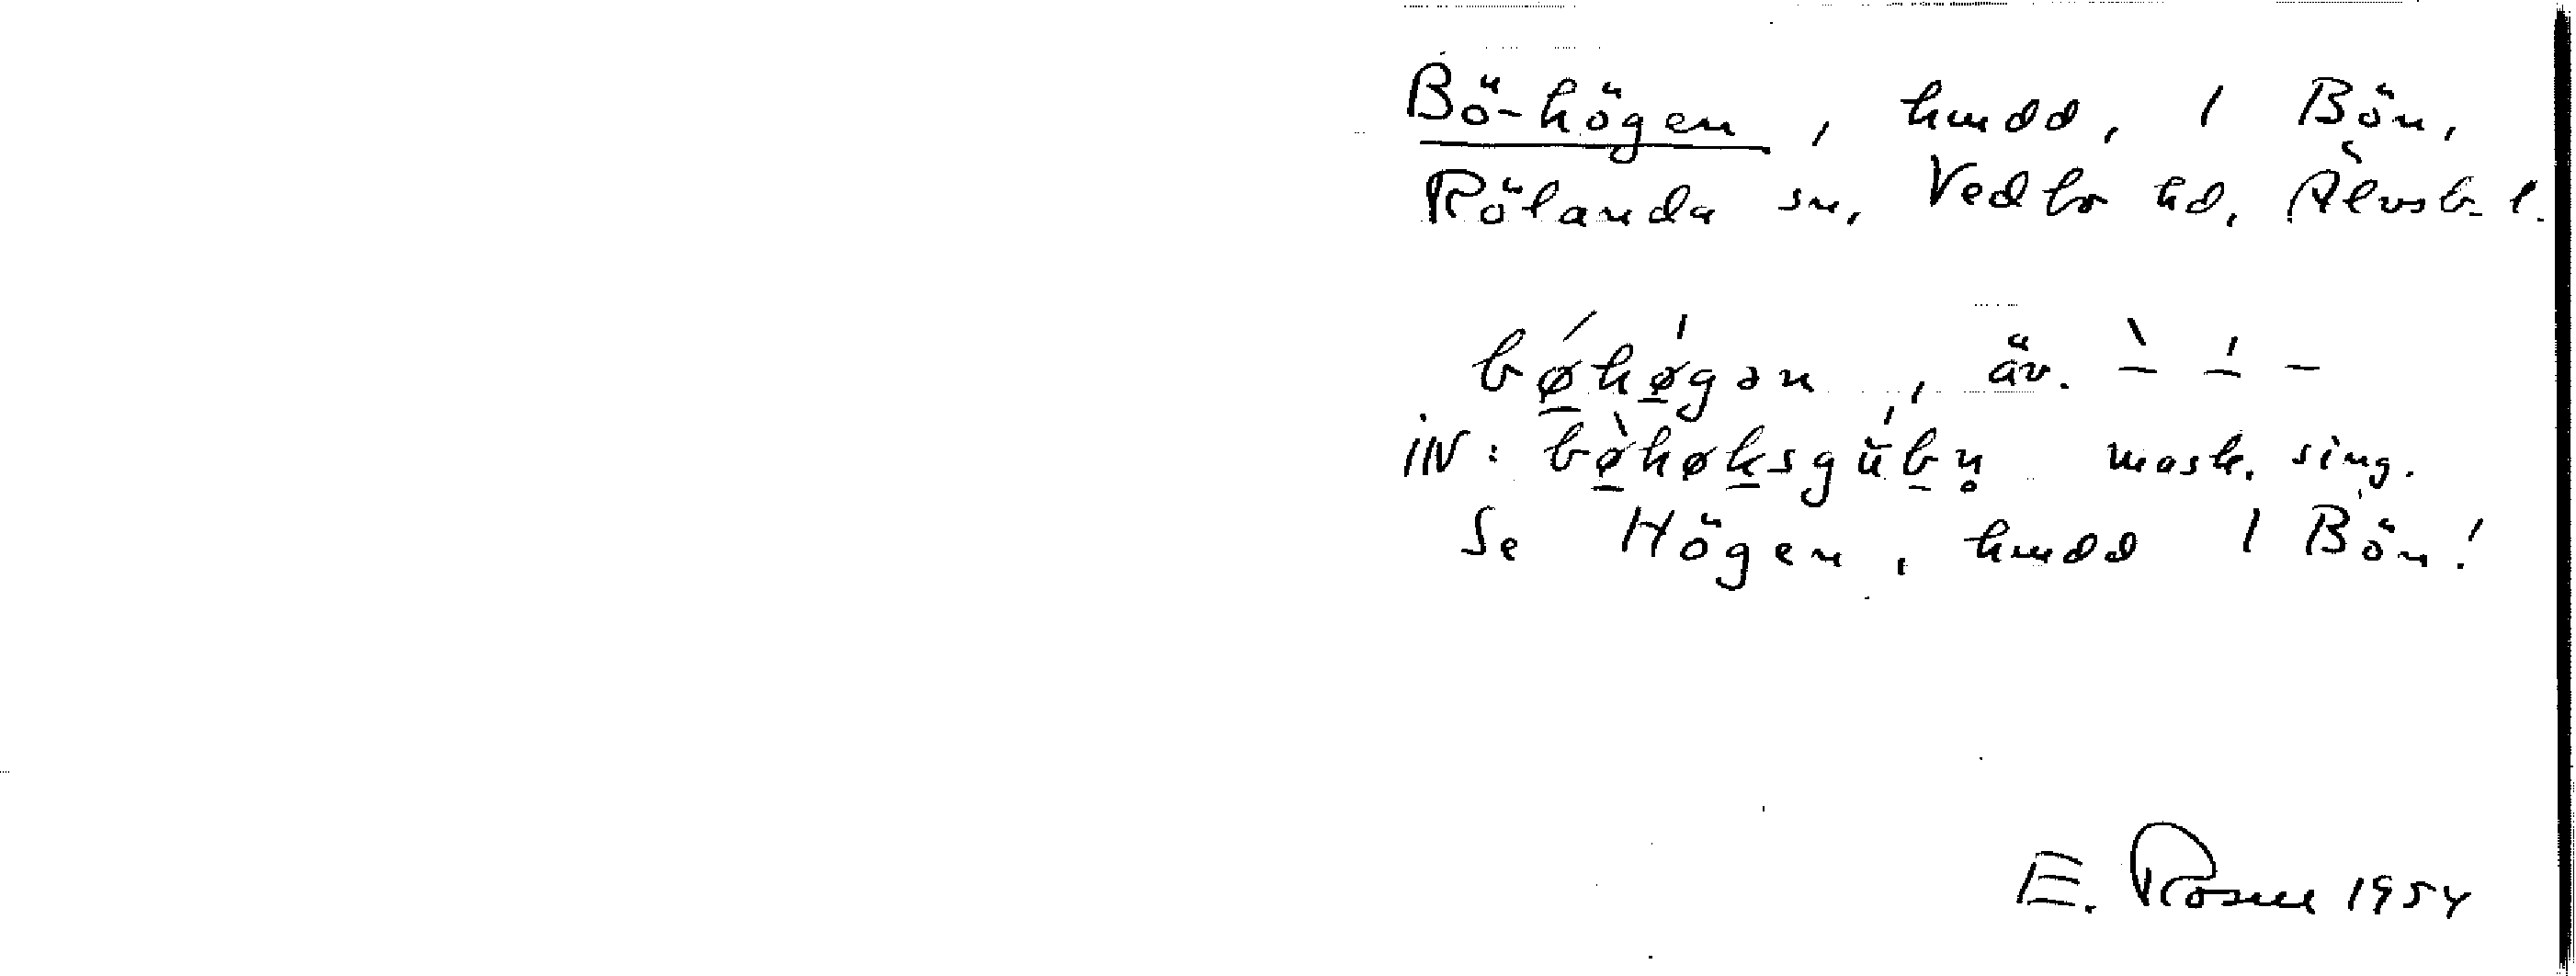 Bö-högen, hmdd, 1 Bön,
Rölanda sn, Vedbo hd, Älvsb. l.
bǿhø̍gən, äv. –̀ –̍ –
inv: bø̀høksgu̍bn̥ mask. sing.
Se Högen, hmdd 1 Bön!
E. Rosell 1954